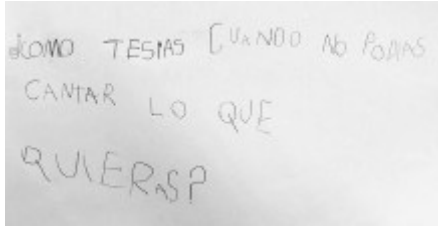 ¿COMO TESIAS CUANDO NO PODIAS
CANTAR LO QUE
QUIERAS?